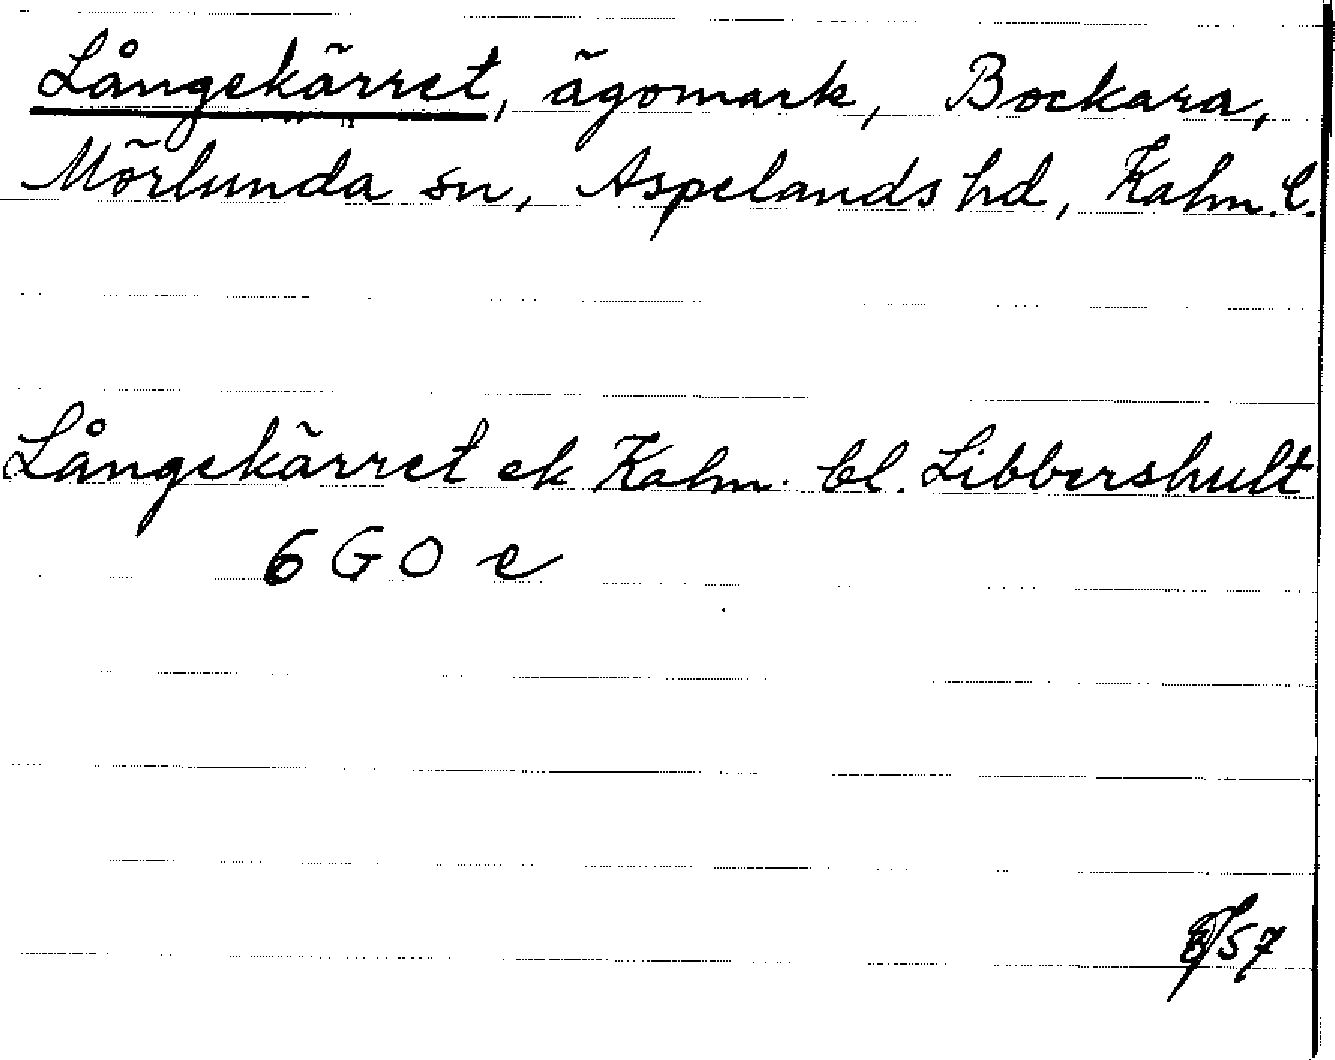 Långekärret, ägomark, Bockara,
Mörlunda sn, Aspelands hd, Kalm. l.
Långekärret ek Kalm. bl. Libbershult
6 G O e
57